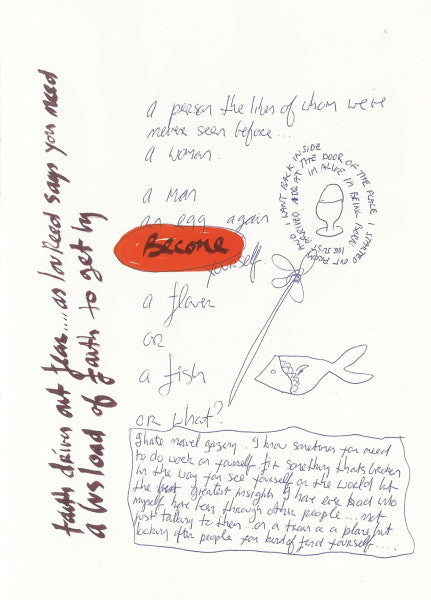 faith drives out fear.... as lou Reed says you need
a bus load of faith to get by
a person the likes of whom we've
never seen before...
a woman.
a man
an egg again
Become
yourself
a flower
or
a fish
or what?
I WANT BACK INSIDE
AT THE DOOR OF THE PLACE I STARTED OUT FROM
I hate navel gazing. I know sometimes you need
to do work on yourself fix something thats broken
in the way you see yourself or the world but
the best greatest insights I have ever had into
myself have been through other people.... not
just talking to them.. on a train or a plane but
looking after people you kind of find yourself.....